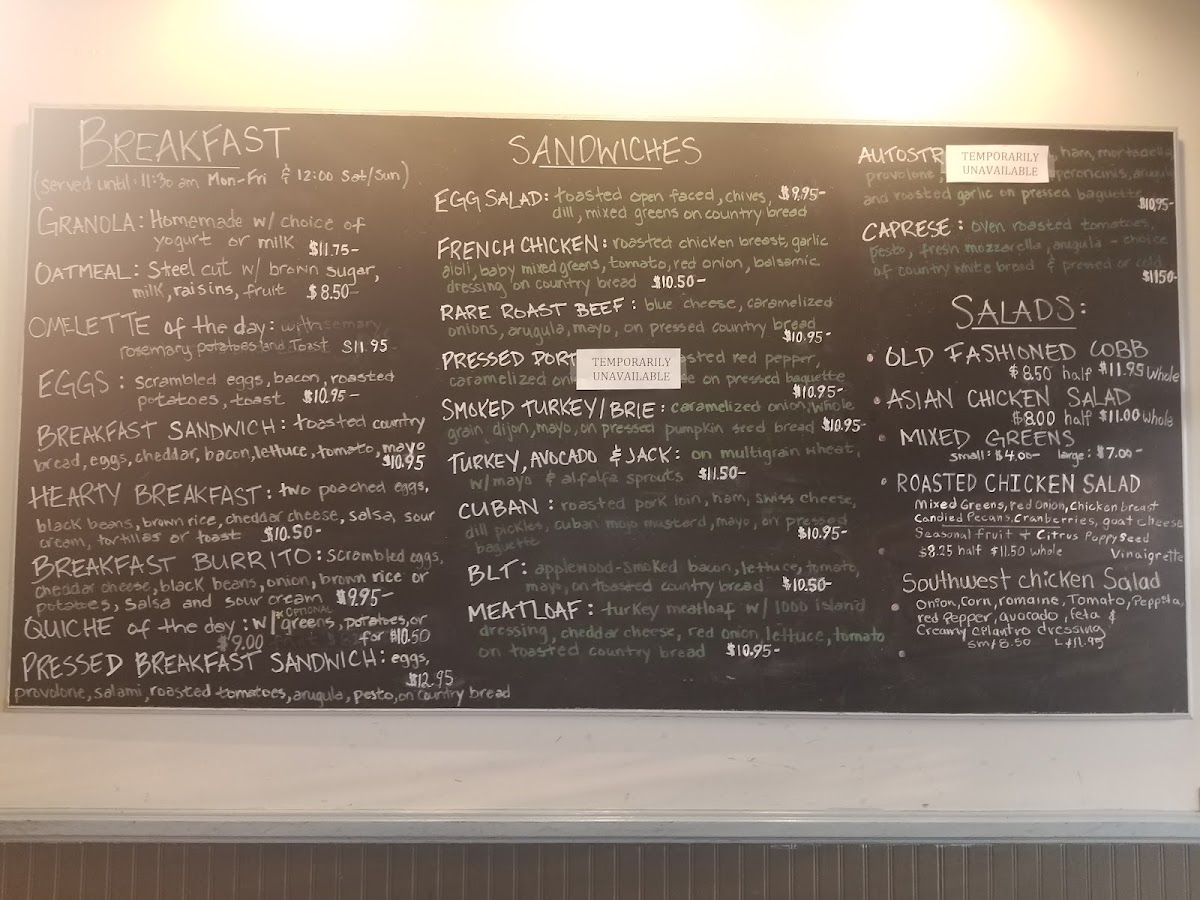 BREAKFAST
(served until 11:30 am Mon-Fri & 12:00 Sat/Sun)
GRANOLA: Homemade w/ choice of
yogurt or milk $11.75-
OATMEAL: Steel cut w/ brown sugar,
milk, raisins, fruit $8.50-
OMELETTE of the day: with
rosemary potatoes and Toast $11.95
EGGS: scrambled eggs, bacon, roasted
potatoes, toast $10.95-
BREAKFAST SANDWICH: toasted country
bread, eggs, cheddar, bacon, lettuce, tomato, mayo
$10.95
HEARTY BREAKFAST: two poached eggs,
black beans, brown rice, cheddar cheese, salsa, sour
cream, tortillas or toast $10.50-
BREAKFAST BURRITO: scrambled eggs,
cheddar cheese, black beans, onion, brown rice or
potatoes, salsa and sour cream $9.95-
QUICHE of the day: w/ greens, potatoes, or
OPTIONAL
$9.00 for $10.50
PRESSED BREAKFAST SANDWICH: eggs,
$12.95
provolone, salami, roasted tomatoes, arugula, pesto, on country bread
SANDWICHES
EGG SALAD: toasted open faced, chives, $9.95-
dill, mixed greens on country bread
FRENCH CHICKEN: roasted chicken breast, garlic
aioli, baby mixed greens, tomato, red onion, balsamic
dressing on country bread $10.50-
RARE ROAST BEEF: blue cheese, caramelized
onions, arugula, mayo, on pressed country bread
$10.95-
PRESSED PORT
TEMPORARILY
UNAVAILABLE
red pepper,
caramelized on pressed baguette
$10.95-
SMOKED TURKEY/BRIE: caramelized onion, whole
grain dijon, mayo, on pressed pumpkin seed bread $10.95-
TURKEY, AVOCADO & JACK: on multigrain wheat,
w/ mayo & alfalfa sprouts $11.50-
CUBAN: roasted pork loin, ham, swiss cheese,
dill pickles, cuban mojo mustard, mayo, on pressed
baguette $10.95-
BLT: applewood-smoked bacon, lettuce, tomato,
mayo, on toasted country bread $10.50-
MEATLOAF: turkey meatloaf w/ 1000 island
dressing, cheddar cheese, red onion, lettuce, tomato
on toasted country bread $10.95-
AUTOSTR
TEMPORARILY
UNAVAILABLE
ham, mortadella
provolone pepperoncinis, arugula
and roasted garlic on pressed baguette
$10.95-
CAPRESE: oven roasted tomatoes,
pesto, fresh mozzarella, arugula - choice
of country white bread & pressed or cold
$11.50-
SALADS:
• OLD FASHIONED COBB
$8.50 half $11.95 whole
• ASIAN CHICKEN SALAD
$8.00 half $11.00 whole
• MIXED GREENS
small: $4.00- large: $7.00-
• ROASTED CHICKEN SALAD
Mixed Greens, red Onion, Chicken breast
Candied Pecans, Cranberries, goat cheese
Seasonal fruit + Citrus Poppyseed
$8.25 half $11.50 whole Vinaigrette
• Southwest Chicken Salad
Onion, Corn, romaine, Tomato, Pepita,
red Pepper, avocado, feta &
Creamy cilantro dressing
sm $8.50 L $11.95